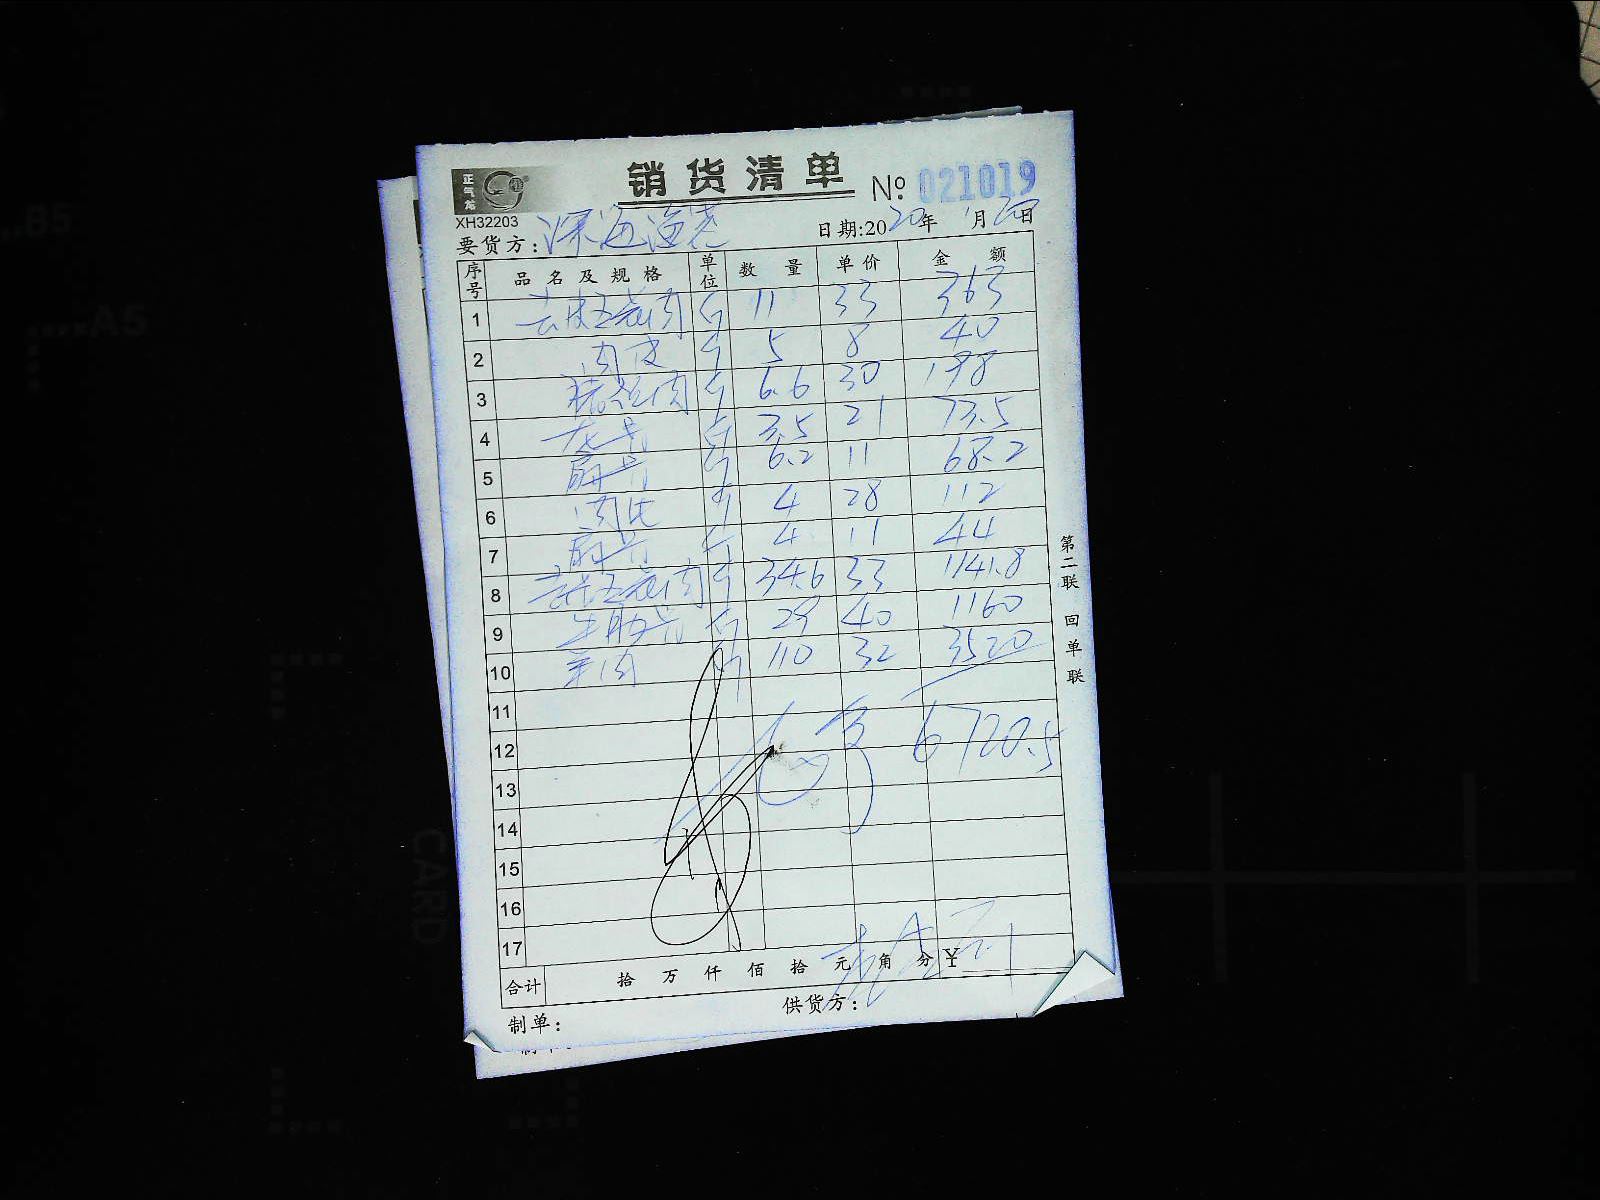 正气龙
销货清单
№ 021019
XH32203
要货方: 深海渔港 日期:2020年1月20日
序号 品名及规格 单位 数量 单价 金额
1 去皮五花肉 斤 11 33 363
2 肉皮 斤 5 8 40
3 猪 肉 斤 6.6 30 198
4 龙骨 斤 3.5 21 73.5
5 扇骨 斤 6.2 11 68.2
6 肉 斤 4 28 112
7 扇骨 斤 4 11 44
8 去皮五花肉 斤 34.6 33 1141.8
9 斤 29 40 1160
10 羊肉 斤 110 32 3520
11
12 6720.5
13
14
15
16
17
合计 拾 万 仟 佰 拾 元 角 分 ¥
制单: 供货方:
第二联 回单联
B5
A5
CARD